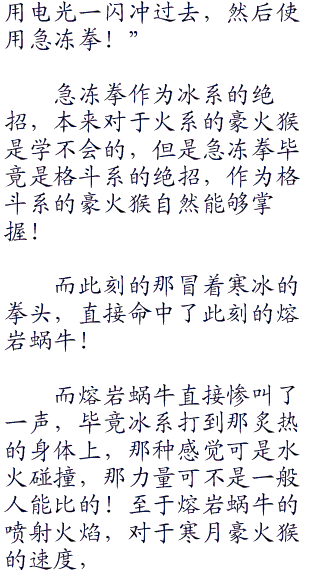 用电光一闪冲过去，然后使
用急冻拳！”
急冻拳作为冰系的绝
招，本来对于火系的豪火猴
是学不会的，但是急冻拳毕
竟是格斗系的绝招，作为格
斗系的豪火猴自然能够掌
握！
而此刻的那冒着寒冰的
拳头，直接命中了此刻的熔
岩蜗牛！
而熔岩蜗牛直接惨叫了
一声，毕竟冰系打到那炙热
的身体上，那种感觉可是水
火碰撞，那力量可不是一般
人能比的！至于熔岩蜗牛的
喷射火焰，对于寒月豪火猴
的速度，